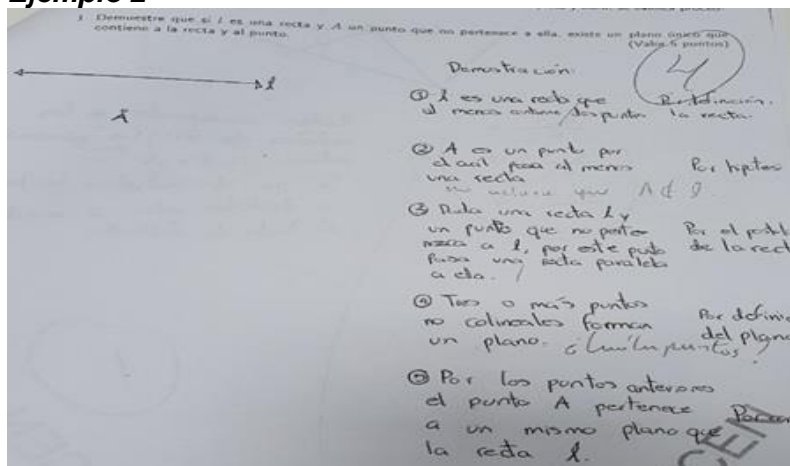 Ejemplo 2
3 Demuestre que si l es una recta y A un punto que no pertenece a ella, existe un plano único que
contiene a la recta y al punto.
(Valor 5 puntos)
4
l
A
Demostración:
① l es una recta que
al menos contiene dos puntos
Por definición.
la recta.
② A es un punto por
el cual pasa al menos
una recta
Por hipótes
que A ∉ l.
③ Dada una recta l y
un punto que no perte-
nezca a l, por este punto
pasa una recta paralela
a ella.
Por el
de la rect
④ Tres o más puntos
no colineales forman
un plano.
Por defini
del plano
puntos?
⑤ Por los puntos anteriores
el punto A pertenece
a un mismo plano que
la recta l.
CEN